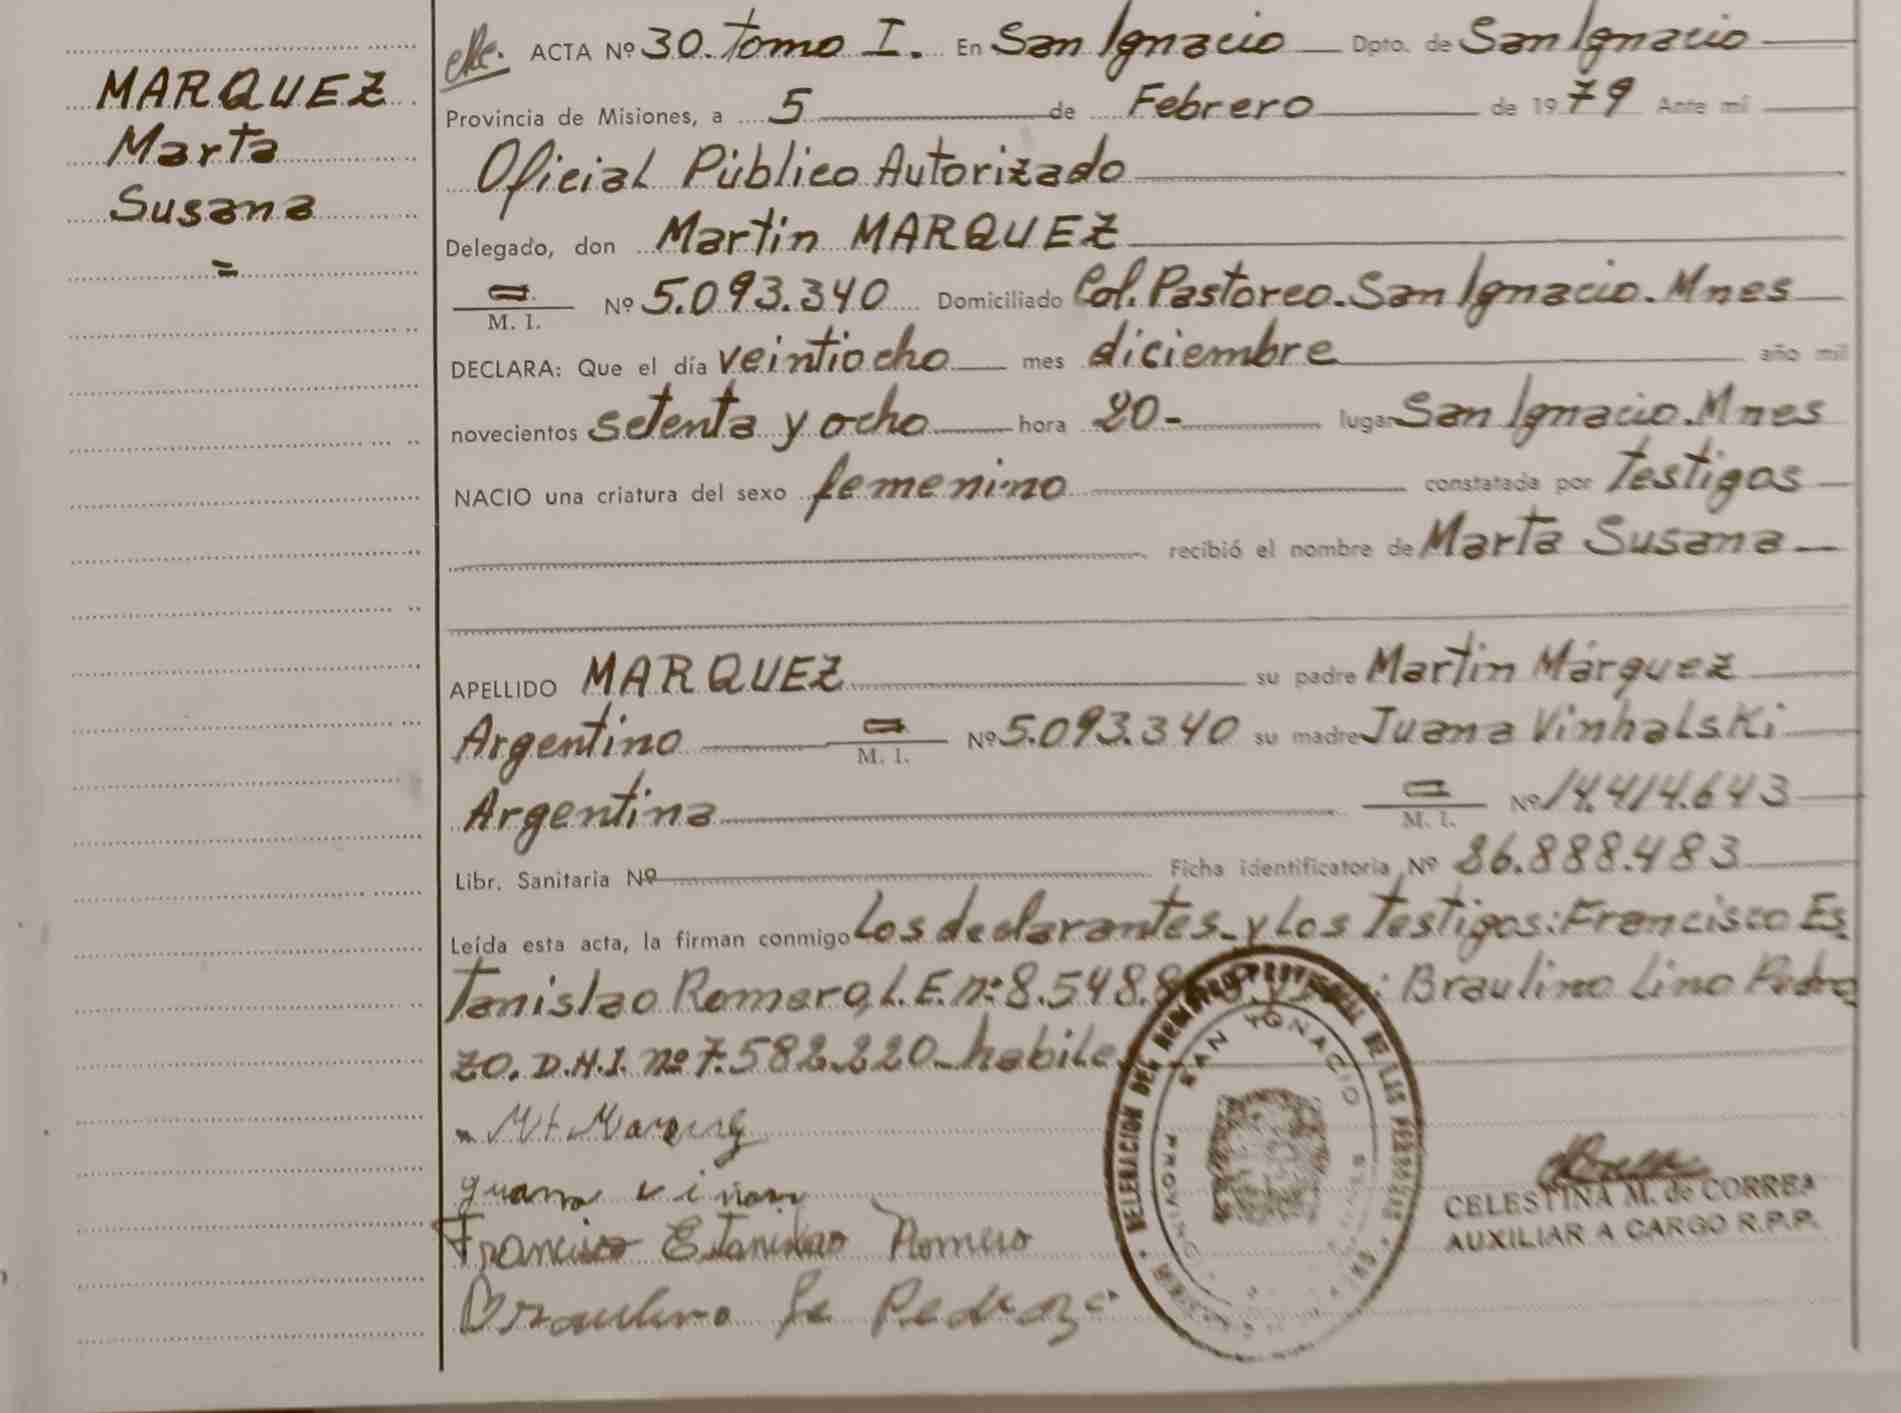 MARQUEZ
Marta
Susana
=
ACTA Nº 30. Tomo I. En San Ignacio Dpto. de San Ignacio
Provincia de Misiones, a 5 de Febrero de 1979 Ante mí
Oficial Público Autorizado
Delegado, don Martin MARQUEZ
M. I. Nº 5.093.340 Domiciliado Col. Pastoreo. San Ignacio. Mnes
DECLARA: Que el día veintiocho mes diciembre año mil
novecientos setenta y ocho hora 20- lugar San Ignacio. Mnes
NACIO una criatura del sexo femenino constatada por Testigos
recibió el nombre de Marta Susana
APELLIDO MARQUEZ su padre Martin Márquez
Argentino M. I. Nº 5.093.340 su madre Juana Vinhalski
Argentina M. I. Nº 14.414.643
Libr. Sanitaria Nº Ficha identificatoria Nº 26.888.483
Leída esta acta, la firman conmigo Los declarantes y Los Testigos: Francisco Es
Tanislao Romero, L.E. nº 8.548.8 : Braulino Lino Pedro
zo. D.N.I. nº 7.582.220 habiles
Mt Marquez
Francisco Estanislao Romero
SAN IGNACIO
CELESTINA M. de CORREA
AUXILIAR A CARGO R.P.P.